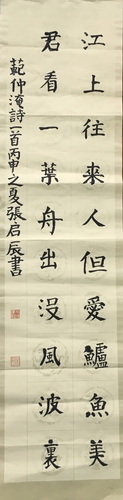 江上往来人但愛鱸魚美
君看一葉舟出没風波裏
範仲淹詩一首丙申之夏張启辰書